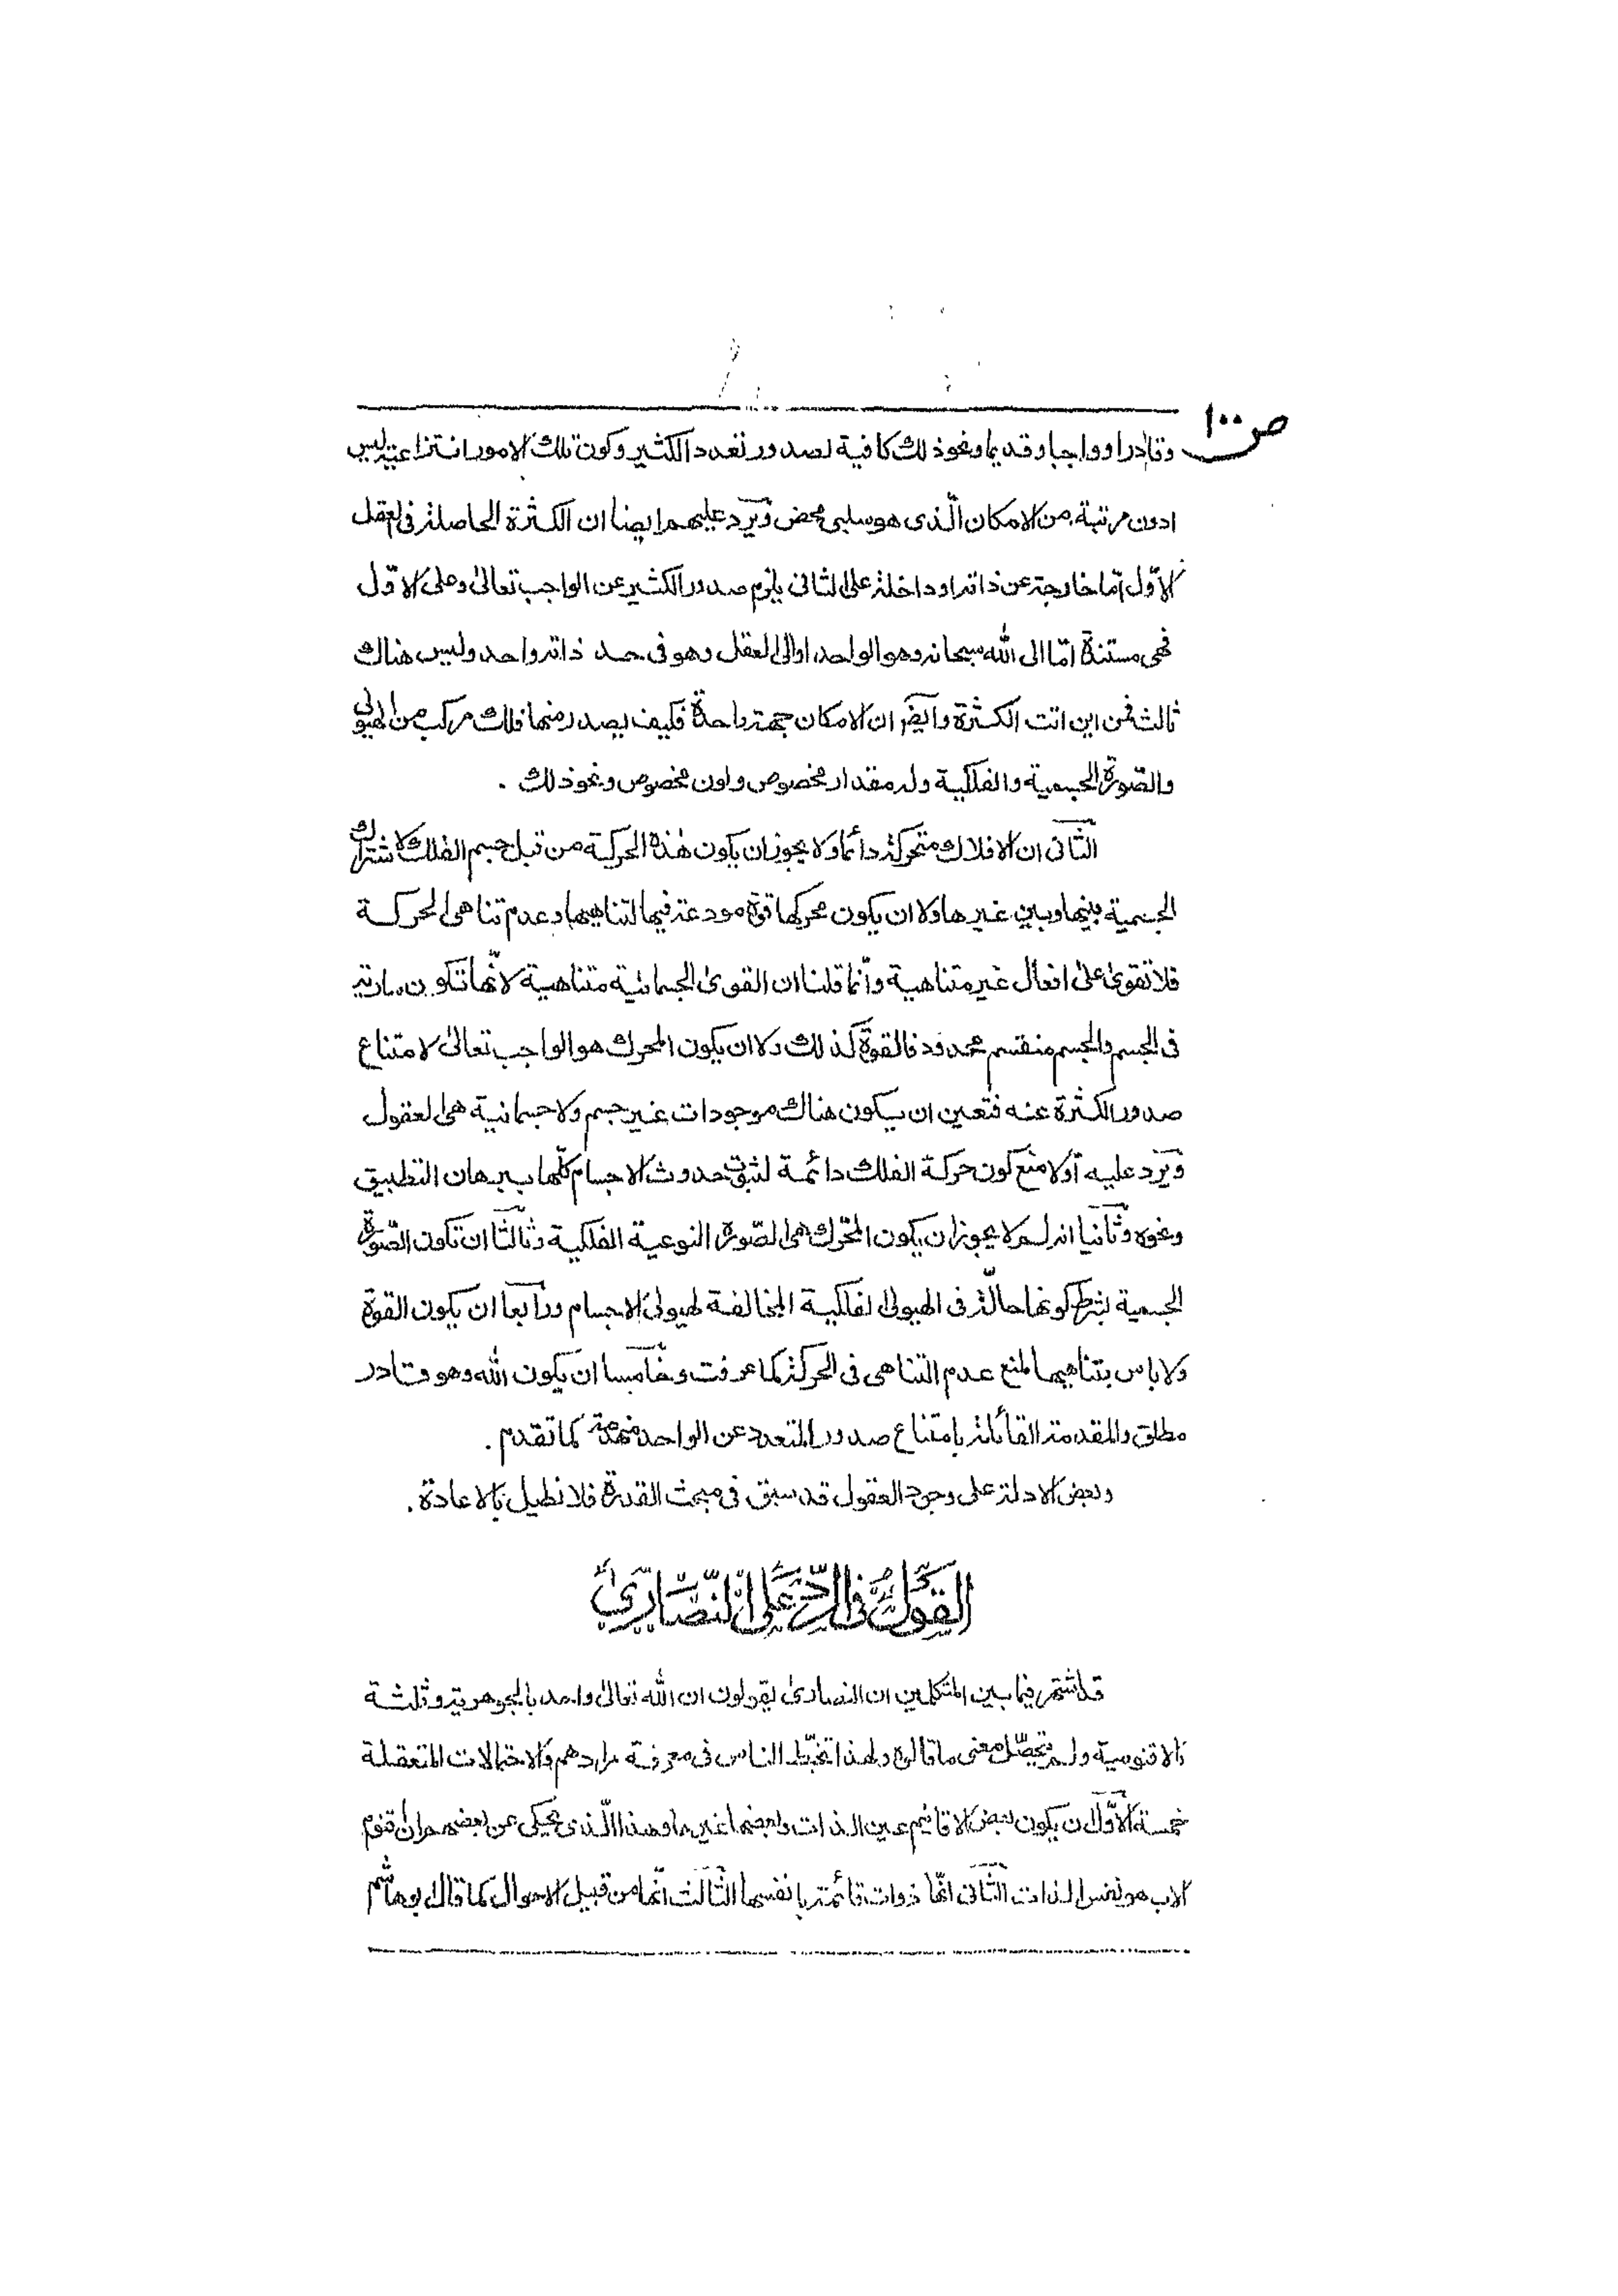 ص ١٠٠
وقادرا وواجبا وقديما ونحوذلك كافية لصدور تعدد الكثير وكون تلك الامور انتزاعية ليس
ادون مرتبة من الامكان الّذى هو سلبى محض ويرد عليهم ايضا ان الكثرة الحاصلة فى العقل
الاوّل امّا خارجة عن ذاته او داخلة على الثانى يلزم صدور الكثير عن الواجب تعالىٰ وعلى الاوّل
فهى مستندة امّا الى اللّٰه سبحانه وهو الواحد، او الى العقل وهو فى حد ذاته واحد وليس هناك
ثالث فمن اين اتت الكثرة وايضر ان الامكان جهة واحدة فكيف يصدر منها فلك مركب من الهيولى
والصّورة الجسمية والفلكية وله مقدار مخصوص ولون مخصوص ونحوذلك .
الثّانى ان الافلاك متحركة دائما ولا يجوز ان يكون هٰذه الحركة من قبل جسم الفلك لاشتراك
الجسمية بينها وبين غيرها ولا ان يكون محركها قوة مودعة فيها لتناهيها وعدم تناهى الحركة
فلا تقوىٰ علىٰ افعال غير متناهية وانّما قلنا ان القوىٰ الجسمانية متناهية لانّها تكون سارية
فى الجسم والجسم منقسم محدود فالقوة كذلك ولا ان يكون المحرك هو الواجب تعالىٰ لامتناع
صدور الكثرة عنه فتعين ان يكون هناك موجودات غير جسم ولا جسمانية هى العقول
ويرد عليه اولا منع كون حركة الفلك دائمة لثبوت حدوث الاجسام كلّها ببرهان التطبيق
ونحوه وثانيا انه لم لا يجوز ان يكون المحرّك هى الصّورة النوعية الفلكية وثالثا ان تكون الصّورة
الجسمية بشرط كونها حالّة فى الهيولى الفلكية المخالفة لهيولى الاجسام ورابعا ان يكون القوة
ولا باس بتناهيها لمنع عدم التناهى فى الحركة كما عرفت وخامسا ان يكون اللّٰه وهو قادر
مطلق والمقدمة القائلة بامتناع صدور المتعدد عن الواحد منهدمة كما تقدم .
وبعض الادلة على وجود العقول قد سبق فى مبحث القدرة فلا نطيل بالاعادة .
القَولُ فِى الرَّدِّ عَلَى النَّصَارىٰ
قد اشتهر فيما بين المتكلمين ان النصارىٰ يقولون ان اللّٰه تعالىٰ واحد بالجوهرية وثلثة
بالاقنومية ولم يتحصّل معنى ما قالوه ولهذا تخبّط الناس فى معرفة مرادهم والاحتمالات المتعقلة
خمسة الاوّل ان يكون بعض الاقانيم عين الذات وبعضها غيرها وهذا الّذى يحكى عن بعضهم ان اقنوم
الاب هو نفس الذات الثّانى انّها ذوات قائمة بانفسها الثّالث انّها من قبيل الاحوال كما قال ابوهاشم